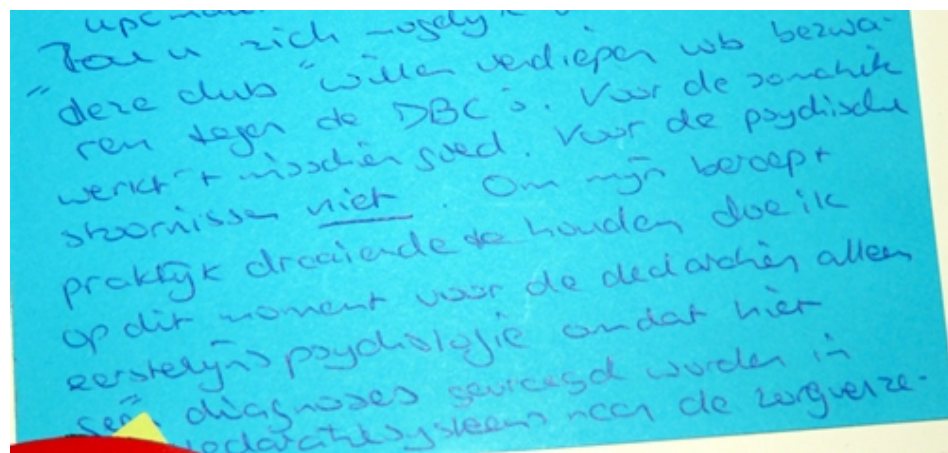 zou u zich mogelijk
"deze club" willen verdiepen wb bezwa-
ren tegen de DBC's. Voor de somatiek
werkt 't misschien goed. Voor de psychische
stoornissen niet. Om mijn beroep +
praktijk draaiende te houden doe ik
op dit moment voor de declaraties alleen
eerstelijns psychologie omdat hier
geen diagnoses gevraagd worden in
declaratiesysteem naar de zorgverze-